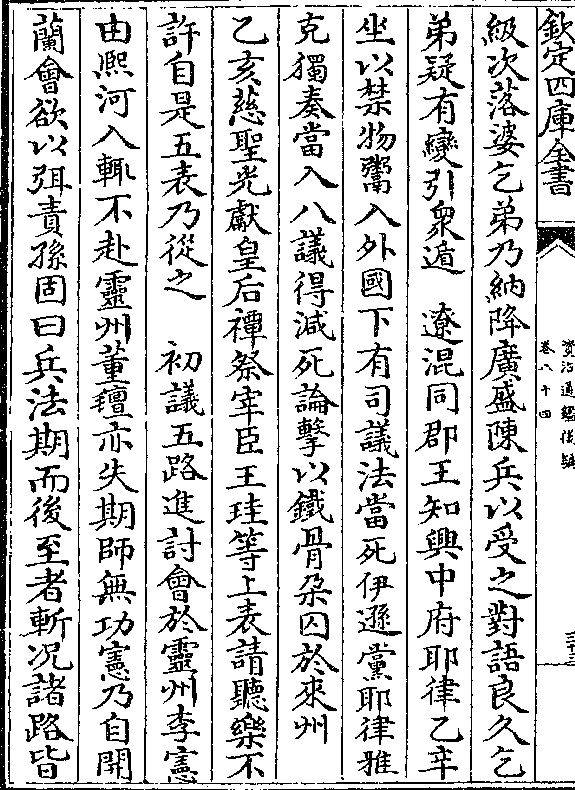 欽定四庫全書
資治通鑑後編
卷八十四
三十三
級次落婆乞弟乃納降廣盛陳兵以受之對語良久乞
弟疑有變引衆遁　遼混同郡王知興中府耶律乙辛
坐以禁物鬻入外國下有司議法當死伊遜黨耶律雅
克獨奏當入八議得減死論擊以鐵骨朶囚於來州
乙亥慈聖光獻皇后禫祭宰臣王珪等上表請聽樂不
許自是五表乃從之　初議五路進討會於靈州李憲
由熙河入輒不赴靈州董氊亦失期師無功憲乃自開
蘭會欲以弭責孫固曰兵法期而後至者斬况諸路皆